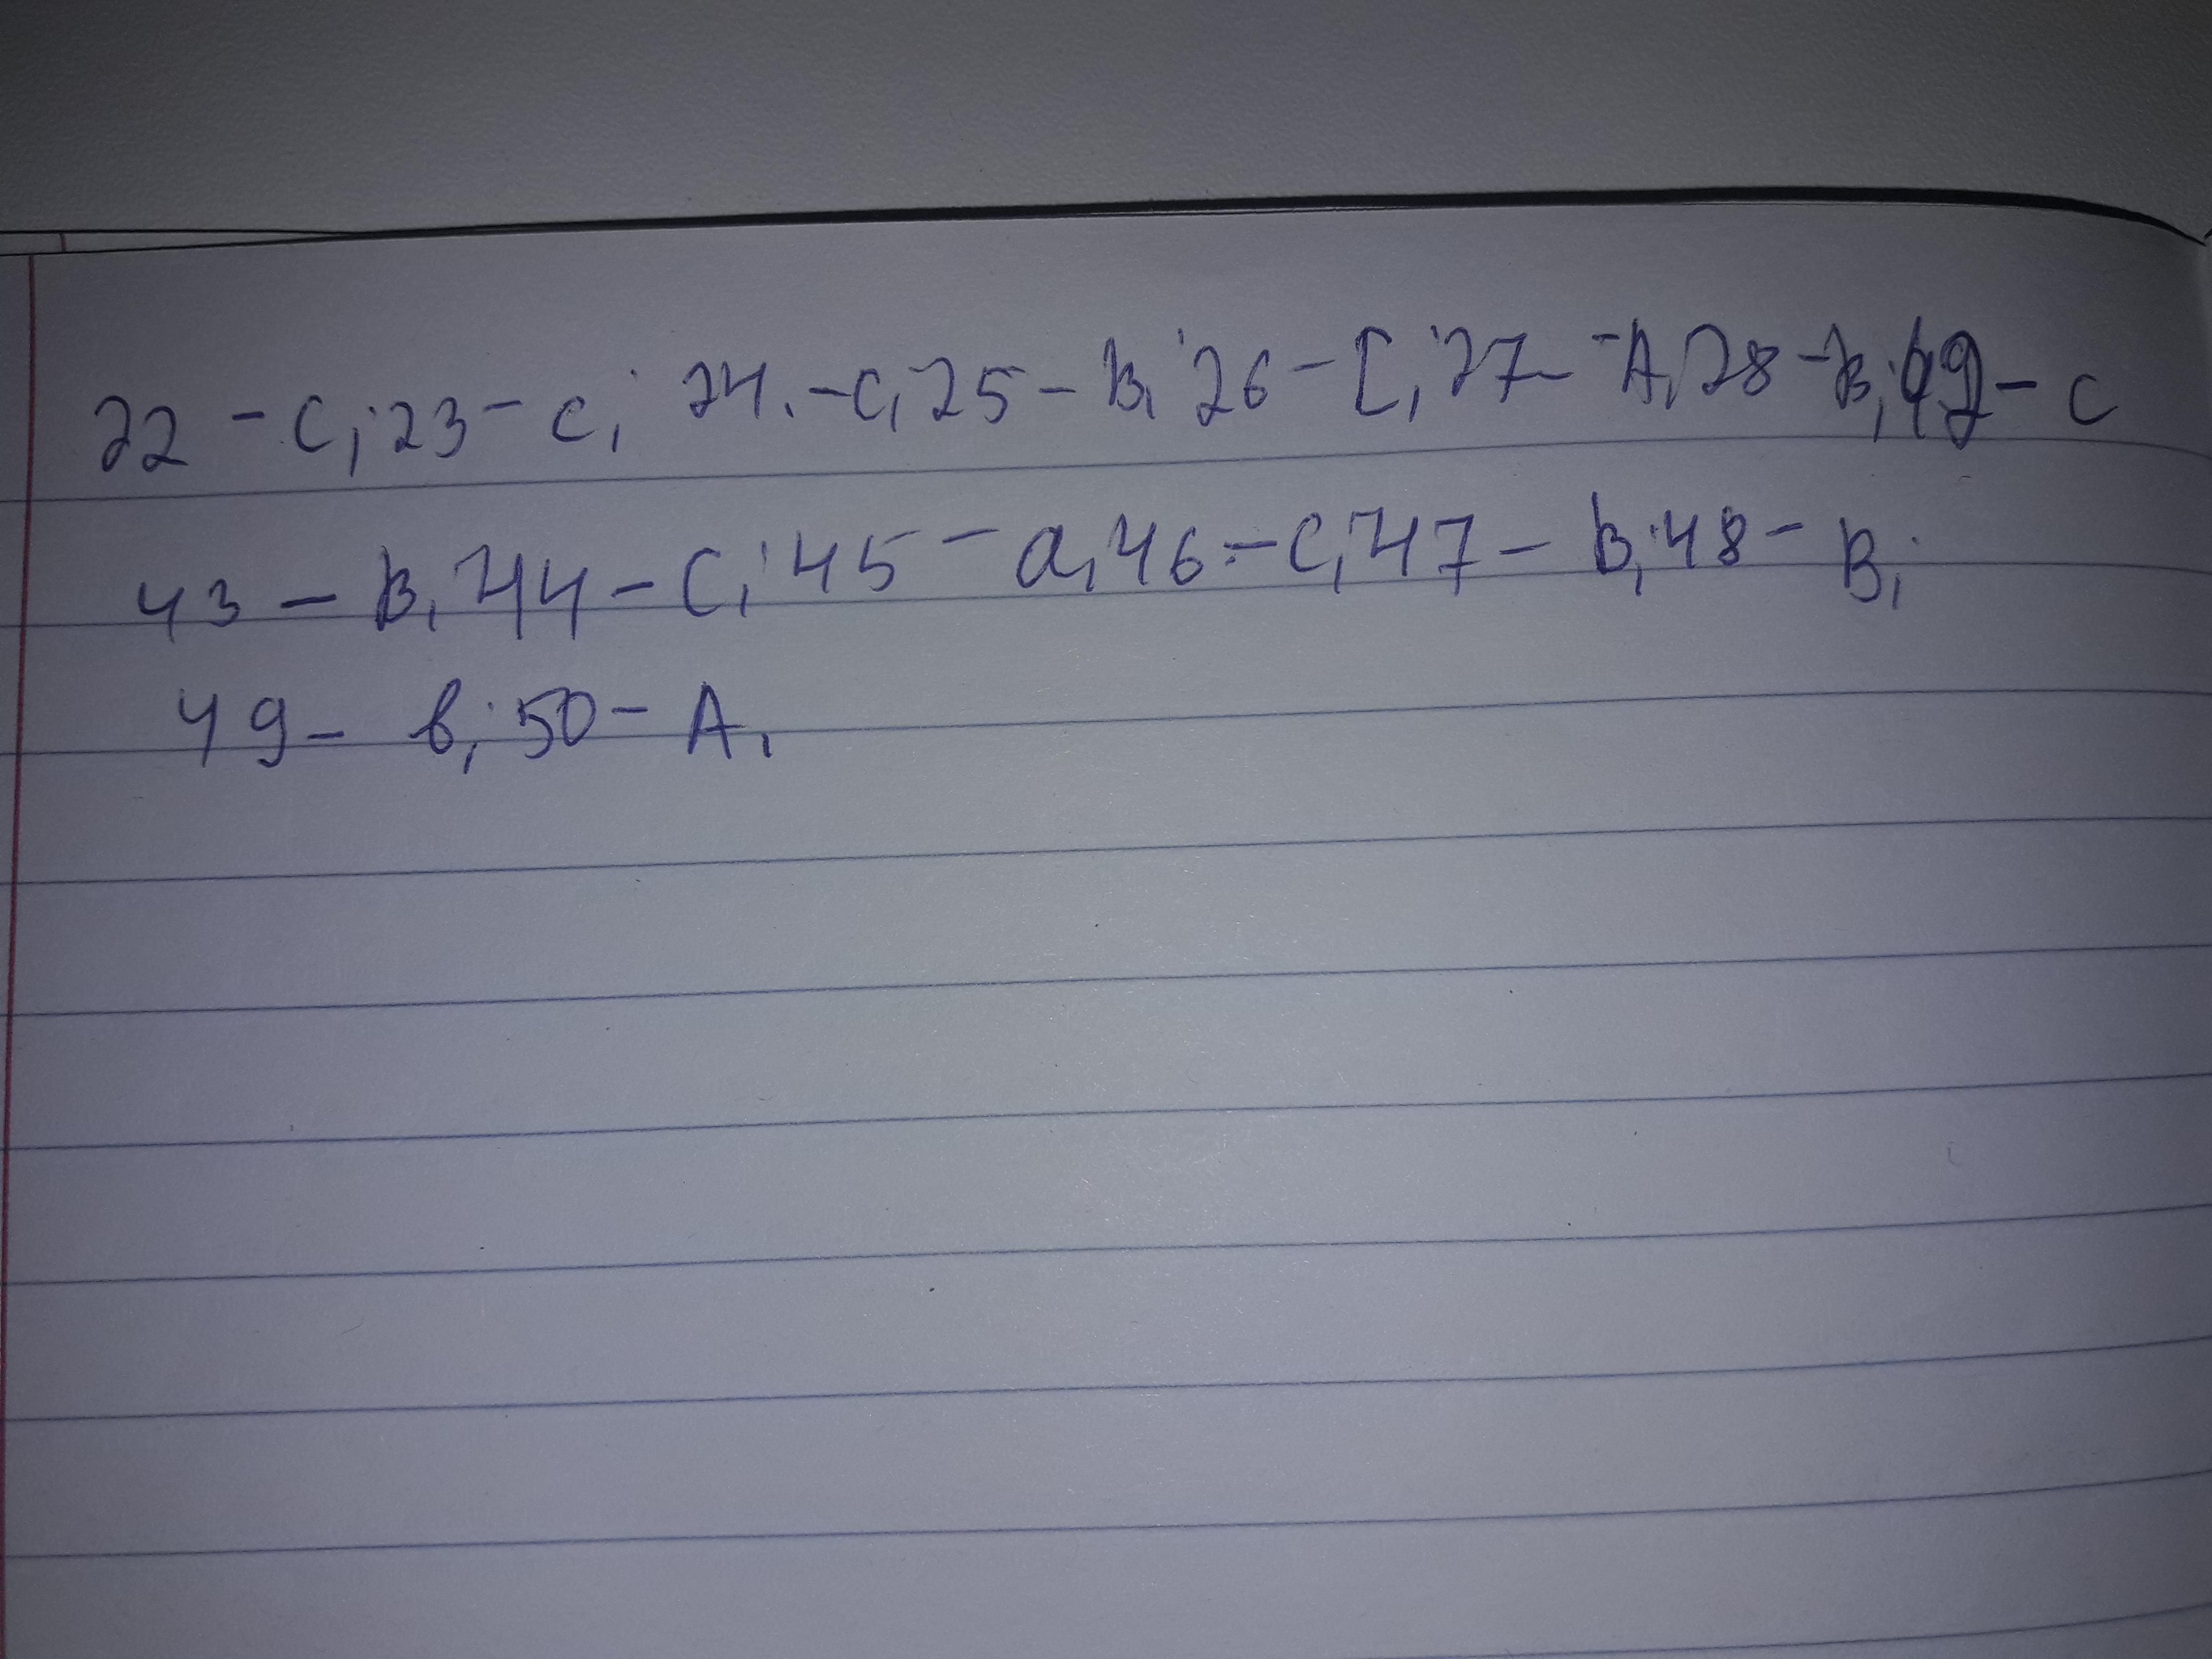 22 - C; 23 - c; 24. - C; 25 - B; 26 - C; 27 - A; 28 - B; 49 - c
43 - B; 44 - C; 45 - a; 46 - C; 47 - B; 48 - B;
49 - b; 50 - A,